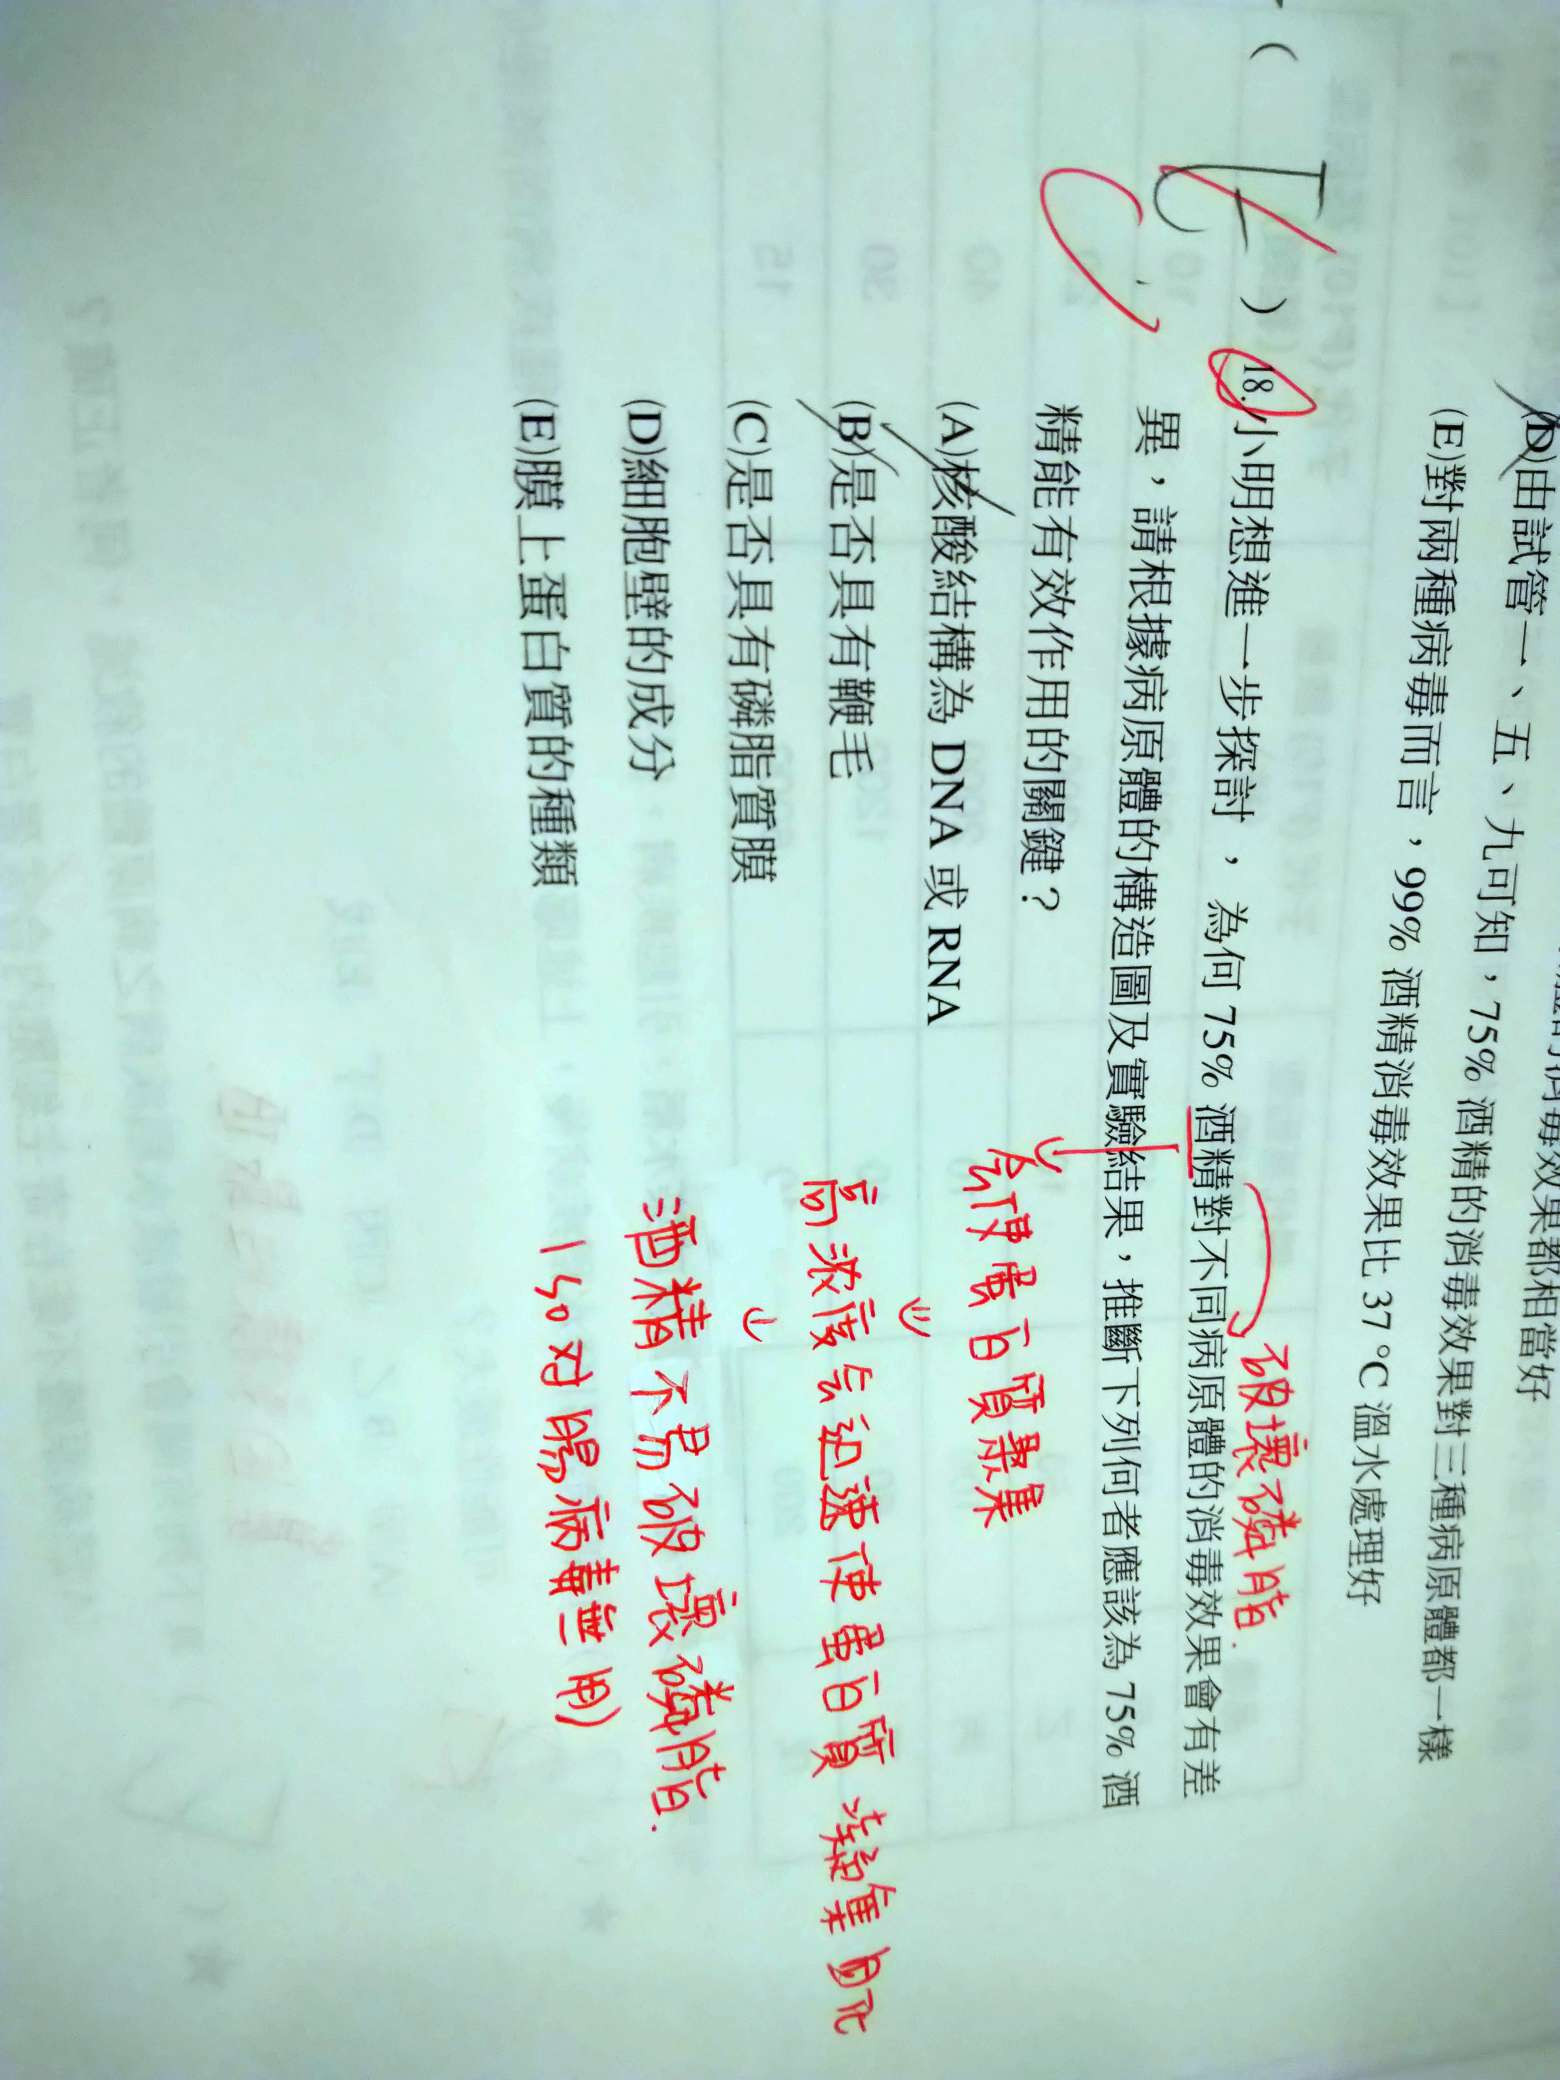 (D)由試管一、五、九可知，75% 酒精的消毒效果對三種病原體都一樣
(E)對兩種病毒而言，99% 酒精消毒效果比 37 ℃ 溫水處理好
( E ) 18.小明想進一步探討，為何 75% 酒精對不同病原體的消毒效果會有差
異，請根據病原體的構造圖及實驗結果，推斷下列何者應該為 75% 酒
精能有效作用的關鍵？
(A)核酸結構為 DNA 或 RNA
(B)是否具有鞭毛
(C)是否具有磷脂質膜
(D)細胞壁的成分
(E)膜上蛋白質的種類
C
破壞磷脂.
会使蛋白質聚集
高濃度会迅速使蛋白質凝集
酒精不易破壞磷脂.
(so对腸病毒無用)